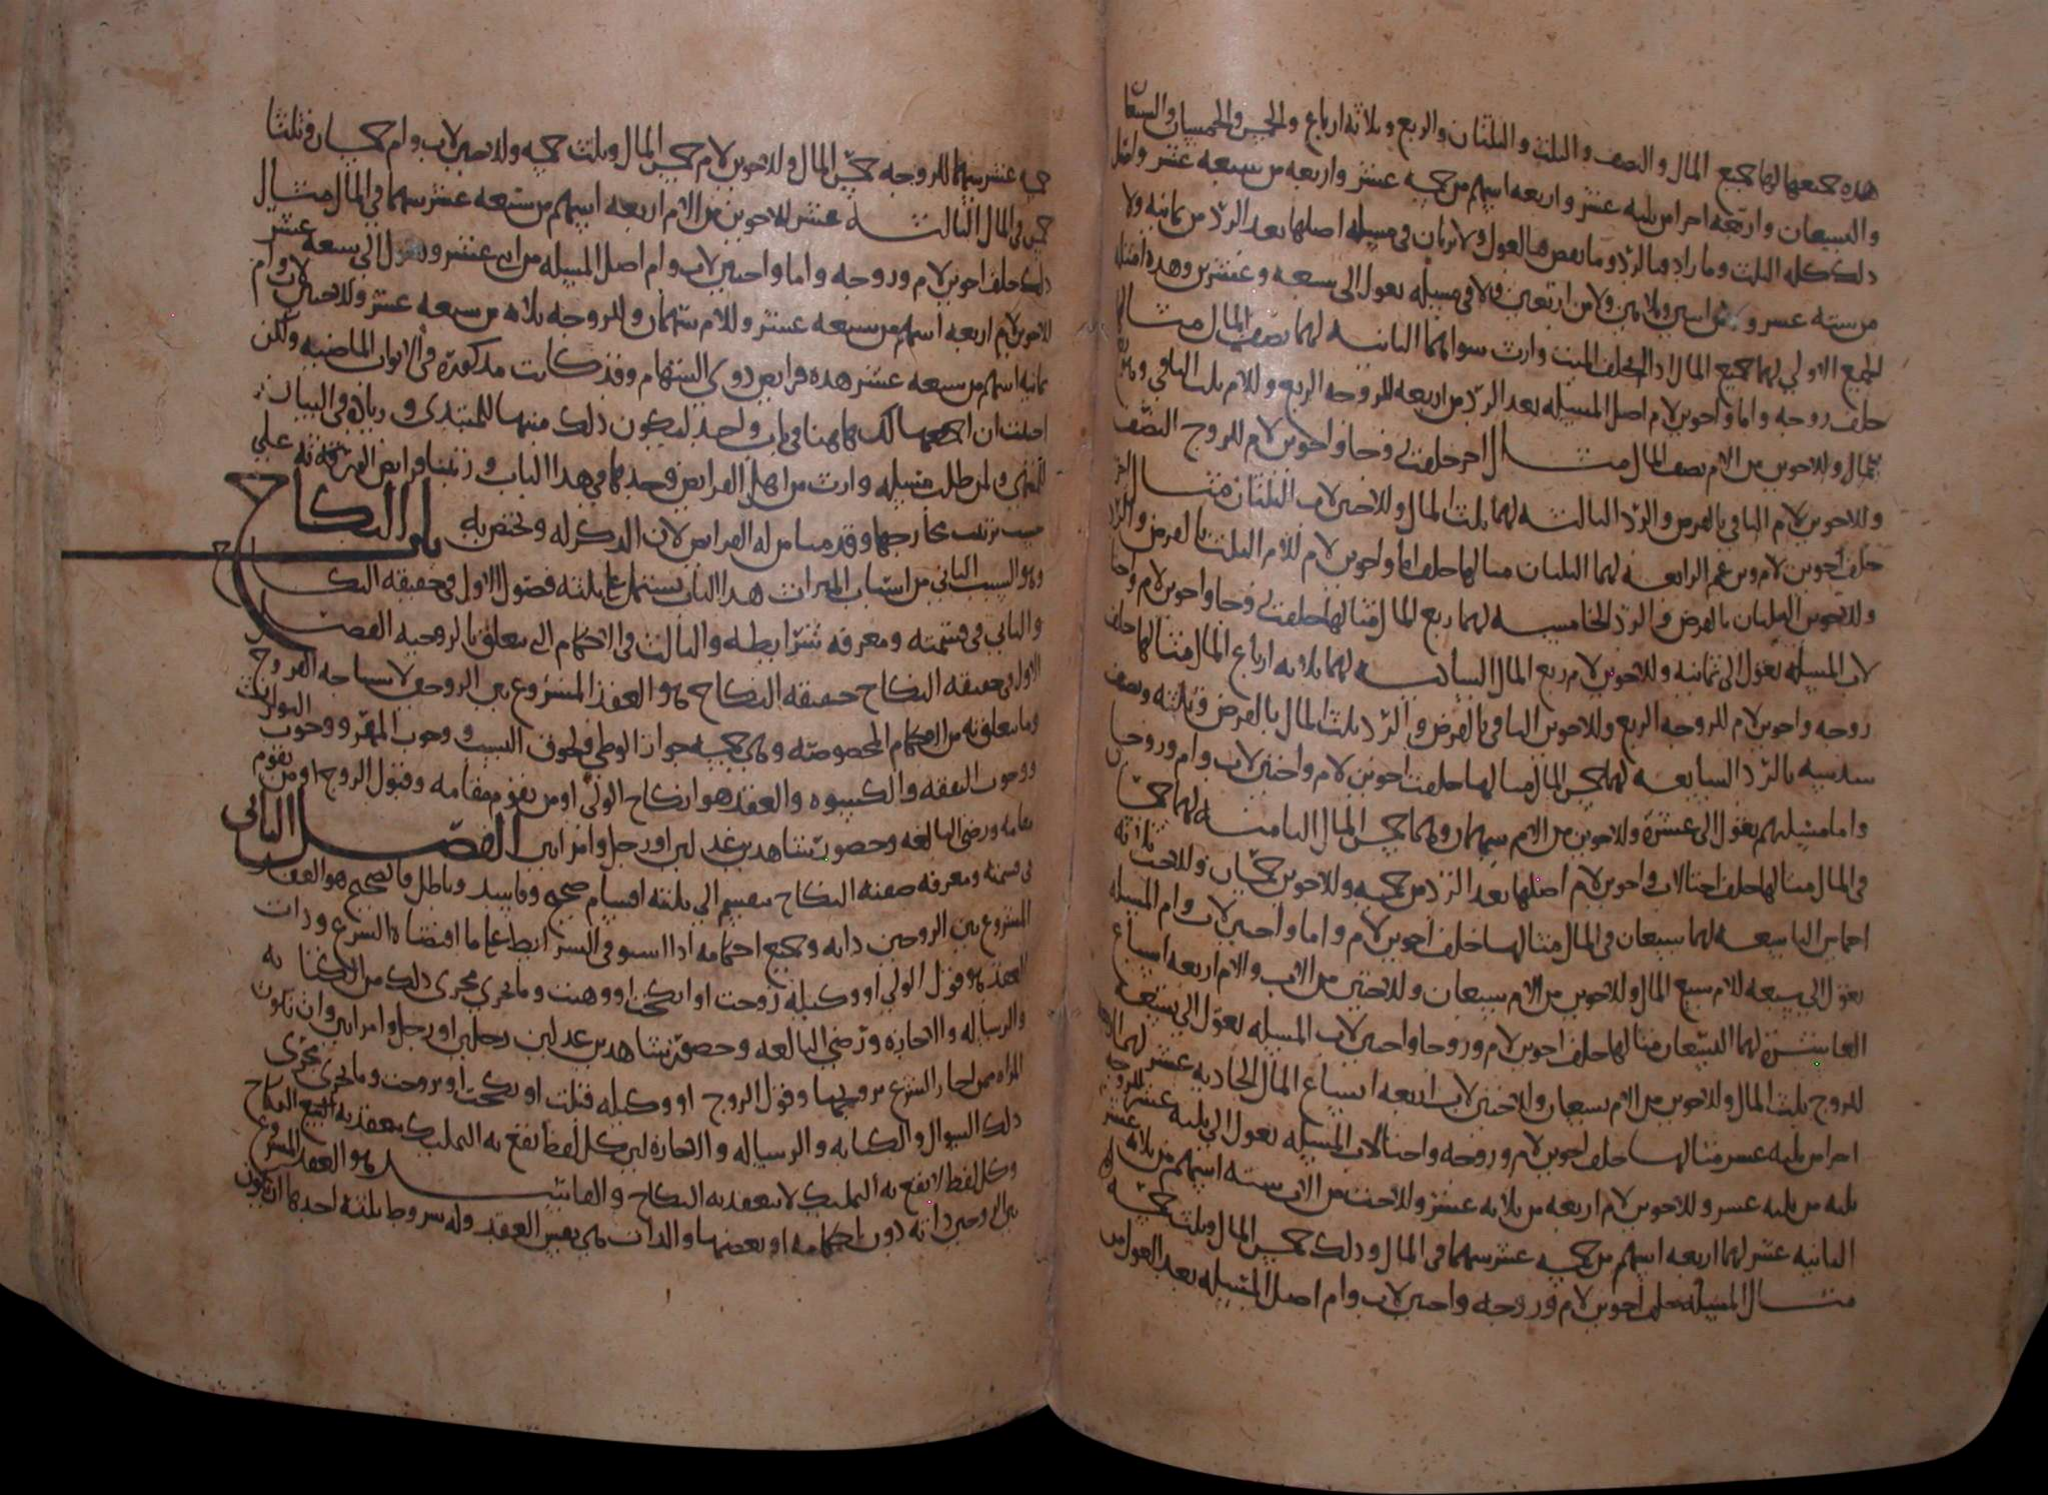 هذه جميعها لهما جميع المال والنصف والثلث والثلثان والربع وثلاثة ارباع والخمس والخمسان والسبعان
والسبعان واربعة اجزا من ثلثه عشر واربعه اسهم من خمسه عشر واربعه من سبعه عشر واصل
ذلك كله الثلث وما زاد فبالرد وما نقص فبالعول ولا يرثان في مسيله اصلها بعد الرد من ثمانيه ولا
من سته عشر ولا من اثنين وثلاثين ولا من اربعين ولا في مسيله تعول الى سبعه وعشرين وهذه امثله
الجميع الاولى لهما جميع المال اذا لم يخلف الميت وارث سواهما الثانيه لهما نصف المال مثال
خلف زوجه واما واخوين لام اصل المسيله بعد الرد من اربعه للزوجه الربع وللام ثلث الباقي وهو
المال وللاخوين من الام نصف المال مثال اخر خلفت زوجا واخوين لام للزوج النصف
وللاخوين لام الباقي بالفرض والرد الثالثه لهما ثلث المال وللاختين لاب الثلثان مثال
خلف اخوين لام وبن عم الرابعه لهما الثلثان مثالها خلف اما واخوين لام للام الثلث بالفرض والرد
وللاخوين الثلثان بالفرض والرد الخامسه لهما ربع المال مثالها خلفت زوجا واخوين لام واختا
لاب المسيله تعول الى ثمانيه وللاخوين لام ربع المال السادسه لهما ثلاثه ارباع المال مثالها خلف
زوجه واخوين لام للزوجه الربع وللاخوين الباقي بالفرض والرد ثلث المال بالفرض وثلثه ونصف
سدسه بالرد السابعه لهما خمس المال مثالها خلفت اخوين لام واختين لاب وام وزوجا
واما مسيلتهم تعول الى عشره وللاخوين من الام سهمان وهما خمس المال الثامنه لهما خمسا
في المال مثالها خلف اختا لاب واخوين لام اصلها بعد الرد من خمسه وللاخوين خمسان وللاخت ثلاثه
اخماس التاسعه لهما سبعان في المال مثالها خلف اخوين لام واما واختين لاب وام المسيله
تعول الى سبعه للام سبع المال وللاخوين من الام سبعان وللاختين من الاب والام اربعه اسباع
العاشره لهما التسعان مثالها خلف اخوين لام وزوجا واختين لاب المسيله تعول الى تسعه
للزوج ثلث المال وللاخوين من الام تسعان وللاختين لاب اربعه اتساع المال الحاديه عشر لهما اربعه
اجزا من ثلثه عشر مثالها خلف اخوين لام وزوجه واختا لاب المسيله تعول الى ثلثه عشر للزوجه
ثلثه من ثلثه عشر وللاخوين لام اربعه من ثلاثه عشر وللاخت من الاب سته اسهم من ثلاثه عشر
الثانيه عشر لهما اربعه اسهم من خمسه عشر سهما في المال وذلك خمس المال وثلث خمسه
مثال المسيله خلف اخوين لام وزوجه واختين لاب وام اصل المسيله بعد العول من
خمسه عشر سهما للزوجه خمس المال وللاخوين لام خمس المال وثلث خمسه وللاختين لاب وام خمسان وثلثا
خمس في المال الثالثه عشر للاخوين من الام اربعه اسهم من سبعه عشر سهما في المال مثال
ذلك خلف اخوين لام وزوجه واما واختين لاب وام اصل المسيله من اثنى عشر وتعول الى سبعه عشر
للاخوين لام اربعه اسهم من سبعه عشر وللام سهمان وللزوجه ثلاثه من سبعه عشر وللاختين لاب وام
ثمانيه اسهم من سبعه عشر هذه فرايض ذوي السهام وقد كانت مذكورة في الابواب الماضيه ولكن
احببت ان اجمعها لك هاهنا في باب واحد ليكون ذلك منبها للمبتدي وزيادة في البيان
للمنتهي ولمن طلب مسيله وارث من اهل الفرايض وجدها في هذا الباب ورتبنا فرايض الفرقه على
حسب ترتيب مخارجها وقدمنا من له الفرايض لان الذكر له ويختص به
باب النكاح
وهو السبب الثاني من اسباب الميراث هذا الباب يشتمل على ثلثه فصول الاول في حقيقه النكاح
والثاني في قسمته ومعرفه شرايطه والثالث في الاحكام التي تتعلق بالزوجيه الفصل
الاول في حقيقه النكاح حقيقه النكاح هو العقد المشروع بين الزوجين لاستباحه الفروج
وما يتعلق به من الاحكام المخصوصه وهي خمسه جواز الوطي ولحوق النسب ووجوب المهر ووجوب التوارث
ووجوب النفقه والكسوه والعقد هو انكاح الولي او من يقوم مقامه وقبول الزوج او من يقوم
مقامه ورضى البالغه وحضور شاهدين عدلين او رجل وامراتين الفصل الثاني
في قسمته ومعرفه صفته النكاح ينقسم الى ثلثه اقسام صحيح وفاسد وباطل فالصحيح هو العقد
المشروع بين الزوجين ذاته وجميع احكامه اذا استوفى الشرايط على ما اقتضاه الشرع وذات
العقد هو قول الولي او وكيله زوجت او انكحت او وهبت وما يجري مجرى ذلك من الكنايه
والرساله والاجازه ورضى البالغه وحضور شاهدين عدلين رجلين او رجل وامراتين وان تكون
المراه ممن اجاز الشرع تزويجها وقول الزوج او وكيله قبلت او نكحت او تزوجت وما يجري مجرى
ذلك السوال والكتابه والرساله والاجازة لان كل لفظ يقع به التمليك ينعقد به النكاح
وكل لفظ لا يقع به التمليك لا ينعقد به النكاح والفاسد هو العقد المشروع
بين الزوجين ذاته دون احكامه او بعضها والذات هي نفس العقد وله شروط ثلثه احدها ان يكون